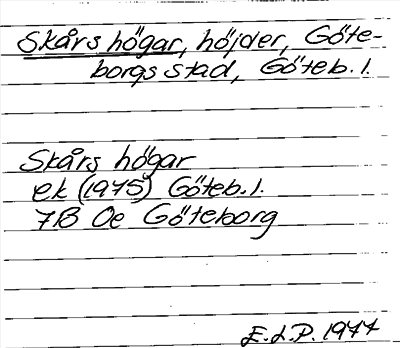 Skårs högar, höjder, Göte-
borgs stad, Göteb. l.
Skårs högar
ek (1975) Göteb. l.
7B Oe Göteborg
E.L.P. 1977